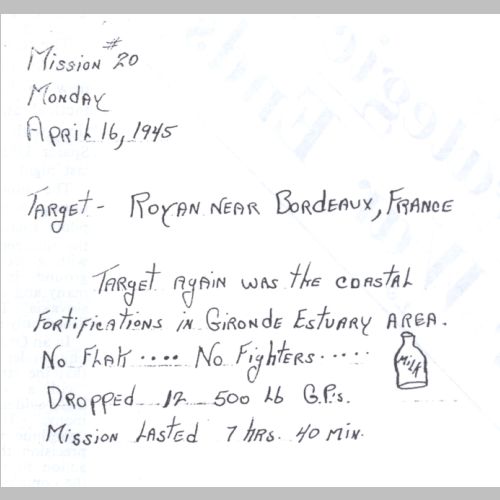 Mission #20
Monday
April 16, 1945
Target - Royan near Bordeaux, France
Target again was the coastal
fortifications in Gironde Estuary area.
No Flak .... No Fighters.....
Milk
Dropped 12 500 lb G.P.'s.
Mission lasted 7 hrs. 40 min.